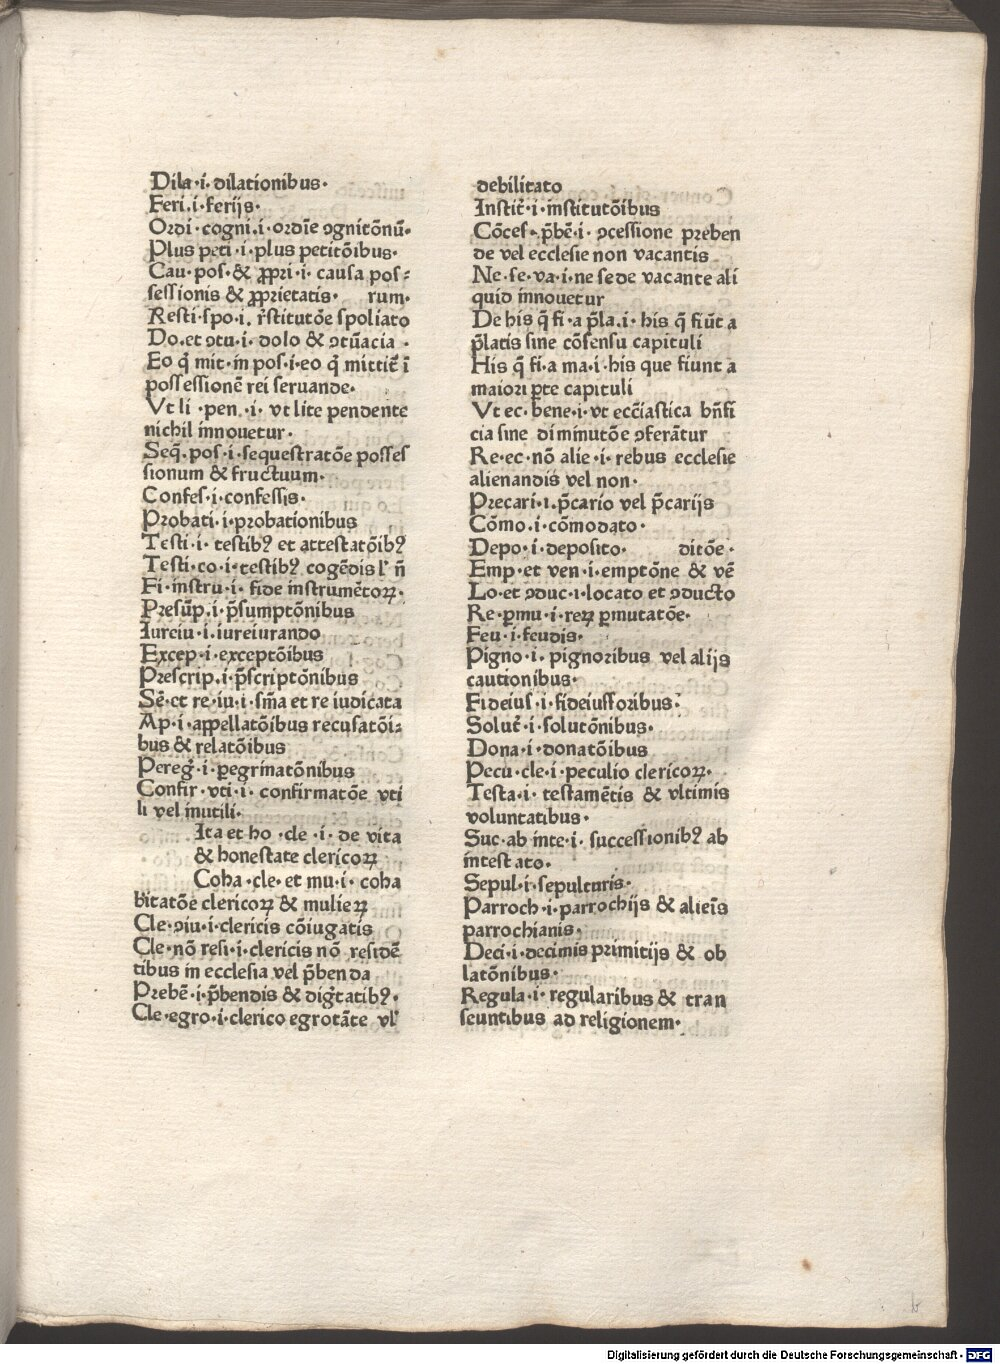 Dila·i· dilationibus·
Feri·i·ferijs·
Ordi·cogni·i·ordīe ꝯgnitōnū·
Plus peti·i·plus petitōibus·
Cau·pos·& ꝓpri·i· causa pos⸗
sessionis & ꝓprietatis· rum·
Resti·spo·i· r̄stitutōe spoliato
Do·et ꝯtu·i· dolo & ꝯtūacia ·
Eo q̄ mit·in pos·i·eo q̄ mittit̄ ī
possessionē rei seruande·
Vt li ·pen ·i· vt lite pendente
nichil innouetur·
Seq̄·pos·i·sequestratōe posses
sionum & fructuum·
Confes·i·confessis·
Probati·i·probationibus
Testi·i· testibꝰ et attestatōibꝰ
Testi·co·i·testibꝰ cogēdis l' n̄
Fi·instru·i· fide instrumētoꝝ·
Presūp·i·p̄sumptōnibus
Iureiu·i·iureiurando
Excep·i·exceptōibus
Prescrip·i·p̄scriptōnibus
Sē·et re·iu·i·sm̄a et re iudicata
Ap·i·appellatōibus recusatōi⸗
bus & relatōibus
Pereḡ·i·peregrinatōnibus
Confir·vti·i· confirmatōe vti
li vel inutili·
Ita et ho ·cle ·i· de vita
& honestate clericoꝝ
Coha·cle·et mu·i· coha
bitatōe clericoꝝ & mulieꝝ
Cle·ꝯiu·i·clericis cōiugatis
Cle·nō resi·i·clericis nō residē
tibus in ecclesia vel p̄benda
Prebē·i·p̄bendis & diḡtatibꝰ·
Cle·egro·i·clerico egrotāte vl'
debilitato
Instit̄·i·institutōibus
Cōces·p̄bē·i·ꝯcessione preben
de vel ecclesie non vacantis
Ne·se·va·i·ne sede vacante ali
quid innouetur
De his q̄ fi·a p̄la·i·his q̄ fiūt a
p̄latis sine cōsensu capituli
His q̄ fi·a ma·i·his que fiunt a
maiori ꝑte capituli
Vt ec·bene·i·vt eccīastica bn̄fi
cia sine diminutōe ꝯferātur
Re·ec·nō alie·i·rebus ecclesie
alienandis vel non·
Precari·i·p̄cario vel p̄carijs
Cōmo·i·cōmodato·
Depo·i·deposito· ditōe·
Emp·et ven·i·emptōne & vē
Lo·et ꝯduc·i·locato et ꝯducto
Re·ꝑmu·i·reꝝ ꝑmutatōe·
Feu·i·feudis·
Pigno·i· pignoribus vel alijs
cautionibus·
Fideius·i·fideiussoribus·
Solut̄·i·solutōnibus·
Dona·i·donatōibus
Pecu·cle·i·peculio clericoꝝ·
Testa·i· testamētis & vltimis
voluntatibus·
Suc·ab inte·i· successionibꝰ ab
intestato·
Sepul·i·sepulturis·
Parroch·i·parrochijs & alieīs
parrochianis·
Deci·i·decimis primitijs & ob
latōnibus·
Regula·i· regularibus & tran
seuntibus ad religionem·
b
Digitalisierung gefördert durch die Deutsche Forschungsgemeinschaft - DFG